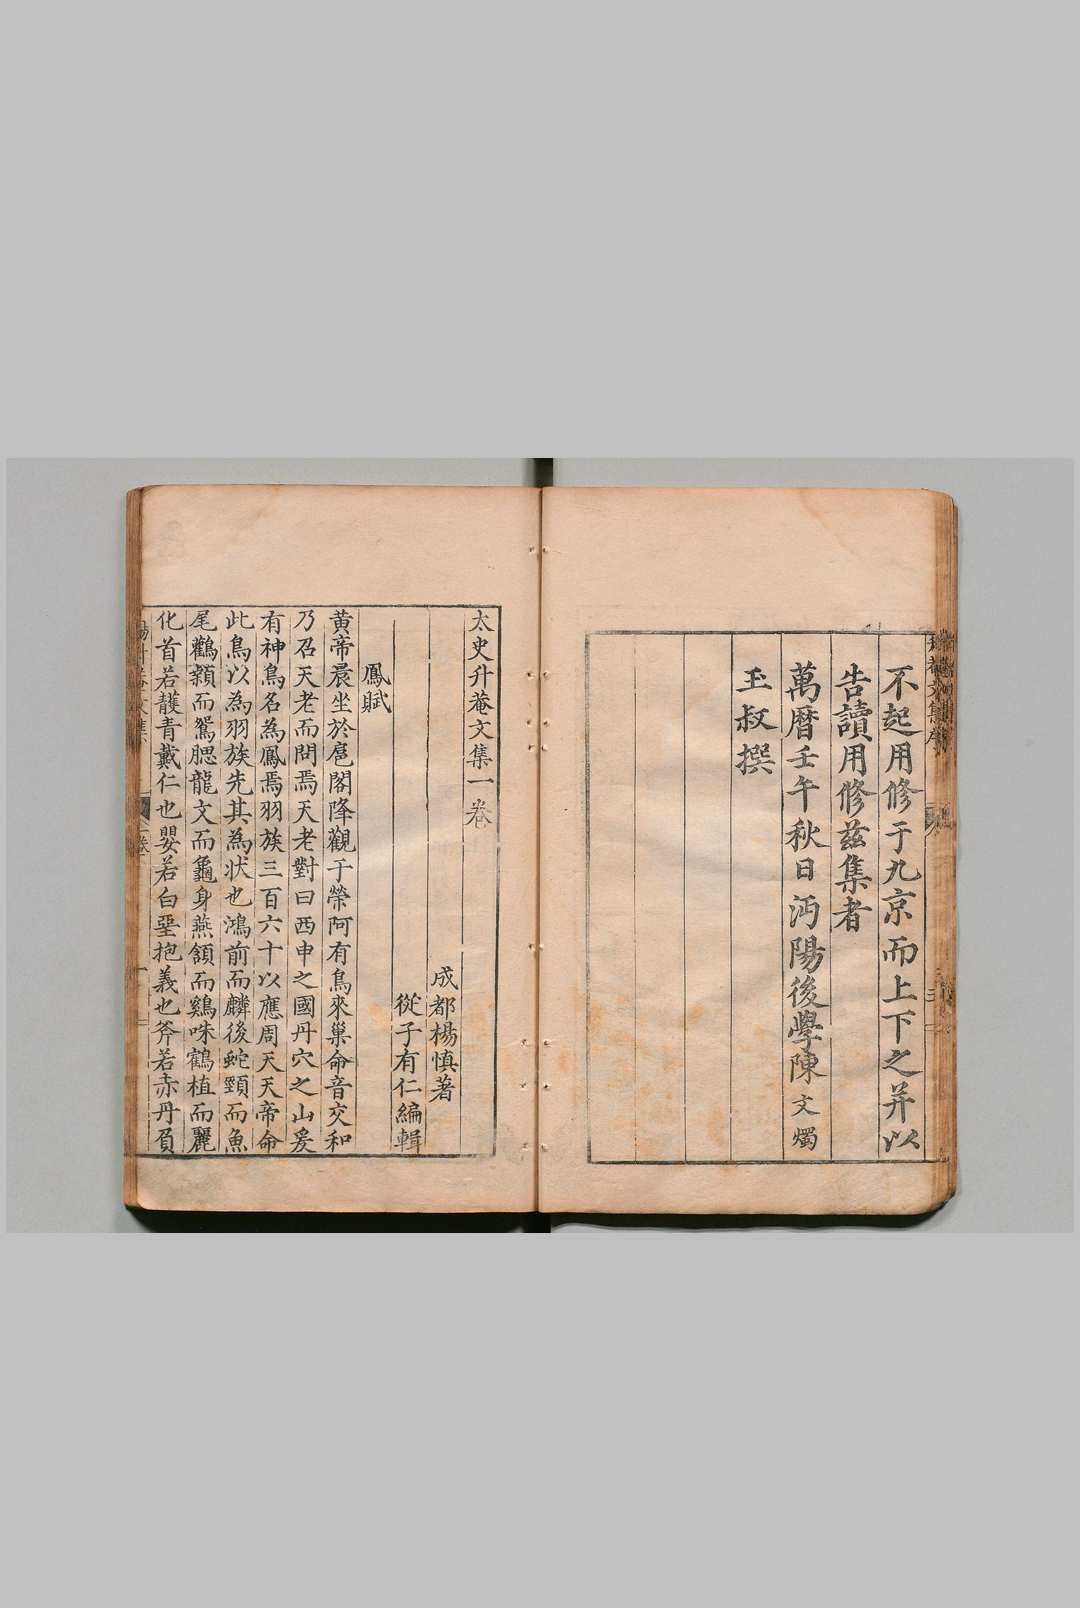 不起用修于九京而上下之并以
告讀用修茲集者
萬曆壬午秋日沔陽後學陳文燭
玉叔撰
太史升菴文集一卷
成都楊慎著
從子有仁編輯
鳳賦
黃帝晨坐於扈閣降觀于榮阿有鳥來巢命音交和
乃召天老而問焉天老對曰西申之國丹穴之山爰
有神鳥名為鳳焉羽族三百六十以應周天天帝命
此鳥以為羽族先其為狀也鴻前而麟後蛇頸而魚
尾鸛顙而鴛腮龍文而龜身燕頷而鷄咮鶴植而麗
化首若頀青戴仁也嬰若白堊抱義也斧若赤丹負